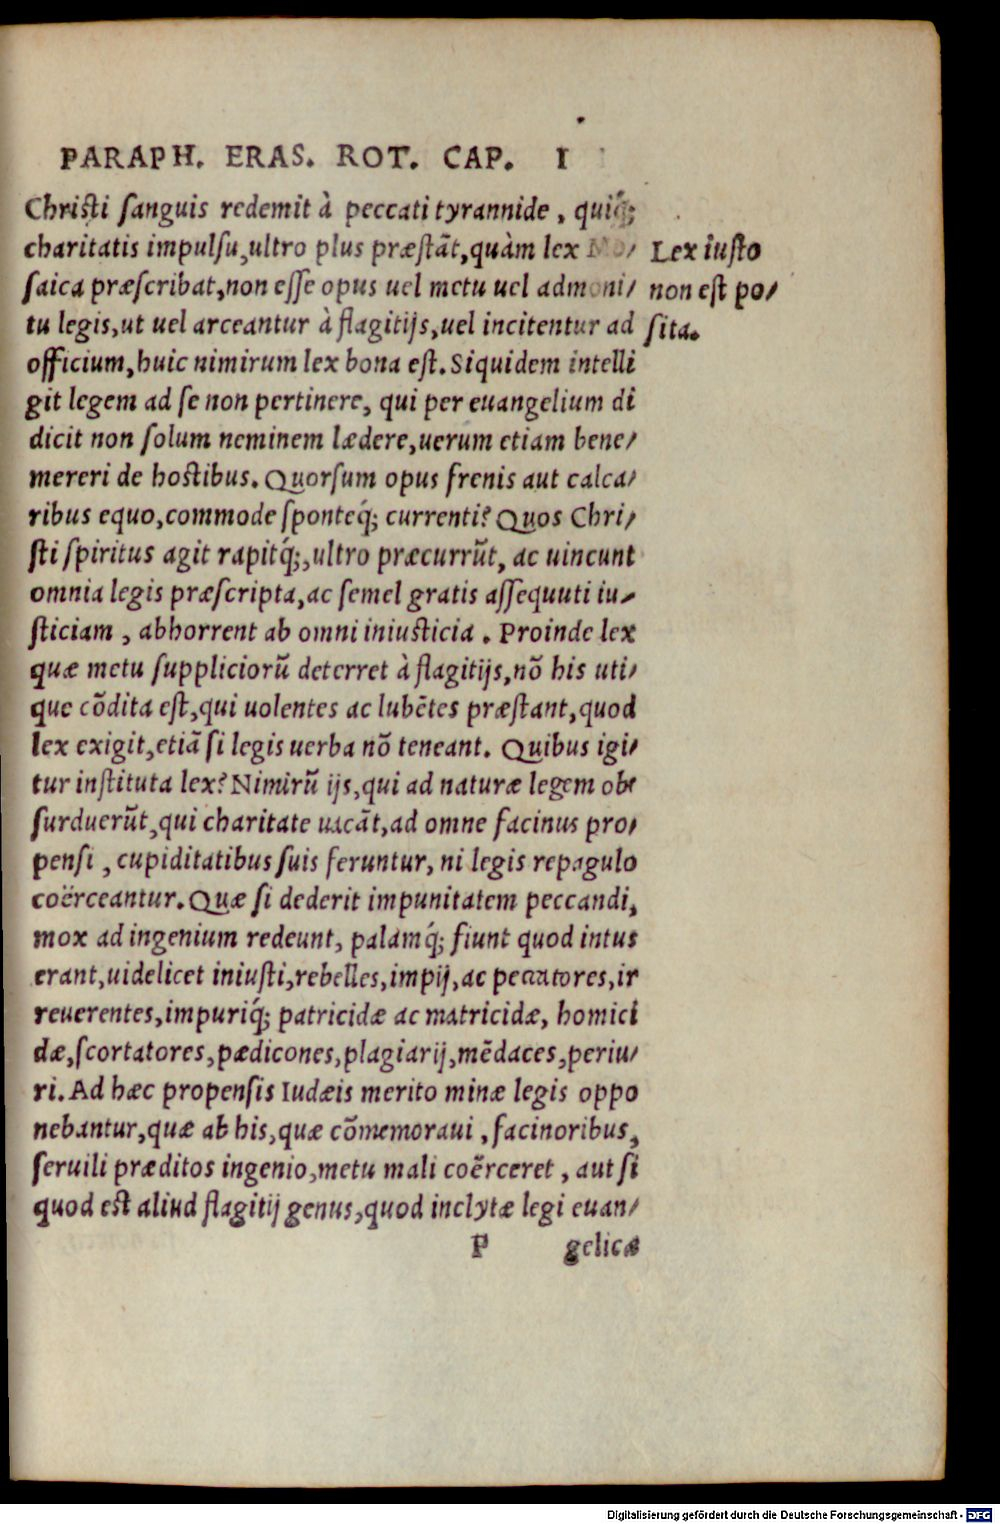 PARAPH. ERAS. ROT. CAP. I
Christi sanguis redemit à peccati tyrannide, quiq́;
charitatis impulsu, ultro plus præstāt, quàm lex Mo/
saica præscribat, non esse opus uel metu uel admoni/
tu legis, ut uel arceantur à flagitijs, uel incitentur ad
officium, huic nimirum lex bona est. Siquidem intelli
git legem ad se non pertinere, qui per euangelium di
dicit non solum neminem lædere, uerum etiam bene/
mereri de hostibus. Quorsum opus frenis aut calca/
ribus equo, commode sponteq́; currenti? Quos Chri/
sti spiritus agit rapitq́;, ultro præcurrūt, ac uincunt
omnia legis præscripta, ac semel gratis assequuti iu/
sticiam, abhorrent ab omni iniusticia. Proinde lex
quæ metu suppliciorū deterret à flagitijs, nō his uti/
que cōdita est, qui uolentes ac lubētes præstant, quod
lex exigit, etiā si legis uerba nō teneant. Quibus igi/
tur instituta lex? Nimirū ijs, qui ad naturæ legem ob/
surduerūt, qui charitate uacāt, ad omne facinus pro/
pensi, cupiditatibus suis feruntur, ni legis repagulo
coërceantur. Quæ si dederit impunitatem peccandi,
mox ad ingenium redeunt, palamq́; fiunt quod intus
erant, uidelicet iniusti, rebelles, impij, ac peccatores, ir
reuerentes, impuriq́; patricidæ ac matricidæ, homici
dæ, scortatores, pædicones, plagiarij, mēdaces, periu/
ri. Ad hæc propensis Iudæis merito minæ legis oppo
nebantur, quæ ab his, quæ cōmemoraui, facinoribus,
seruili præditos ingenio, metu mali coërceret, aut si
quod est aliud flagitij genus, quod inclytæ legi euan/
P gelicæ
Lex iusto
non est po/
sita.
Digitalisierung gefördert durch die Deutsche Forschungsgemeinschaft - DFG